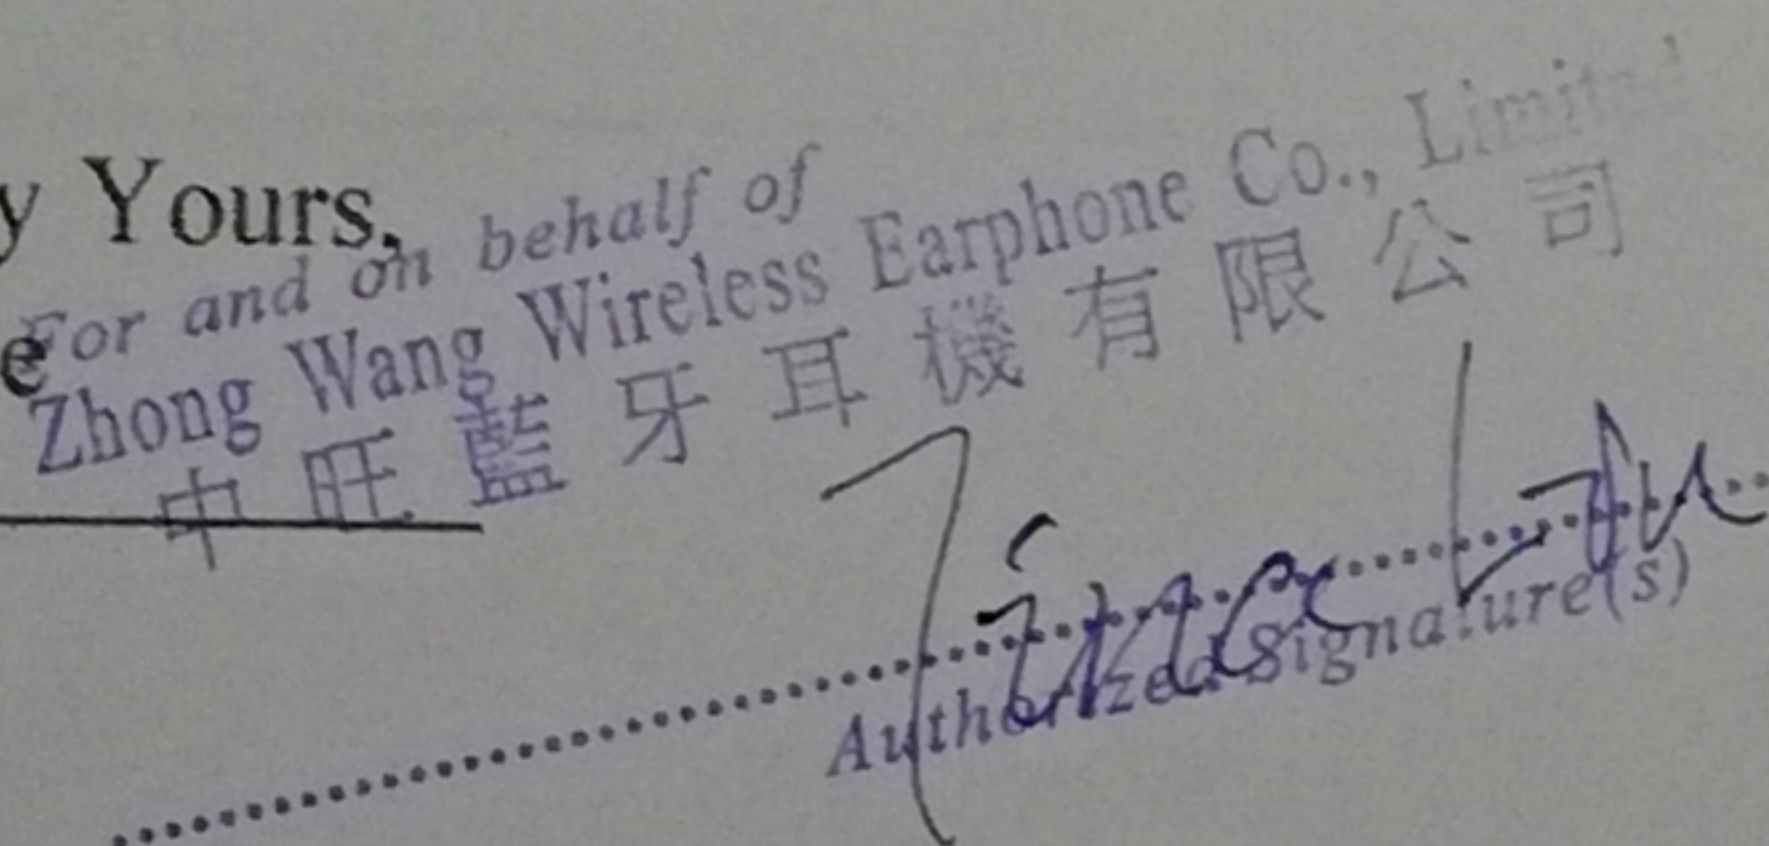 y Yours,
e
For and on behalf of
Zhong Wang Wireless Earphone Co., Limited
中旺藍牙耳機有限公司
Tina
Authorized Signature(s)